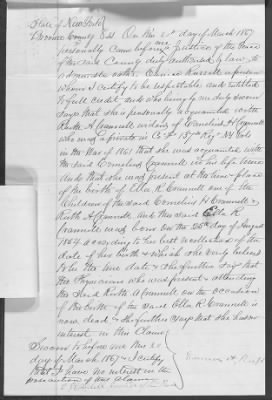 State of New York
County SS. On this 2d day of March 1867
personally came before me a justice of the Peace
of the said County duly authorized by law to
administer oaths, a person
whom I certify to be respectable and entitled
to full credit and who being by me duly sworn
says that she is personally acquainted with
Ruth A Crannell widow of Cornelius H Crannell
who was a private in Co F 15th Reg N Y Vols
in the War of 1861 that she was acquainted with
the said Cornelius Crannell in his life time
And that she was present at the time & place
of the birth of Ella R. Crannell one of the
Children of the said Cornelius H Crannell &
Ruth A Crannell. And the said Ella R
Crannell was born on the 25th day of August
1864 according to her best recollection of the
date of her birth & which she verily believes
to be the true date & She further says that
the Physician who was present & attending
the said Ruth A Crannell on the occasion
of the birth of the said Ella R Crannell is
now dead & She further says that she has no
interest in this Claim
Sworn to before me this 2d
day of March 1867 & I certify
that I have no interest in the
prosecution of this claim